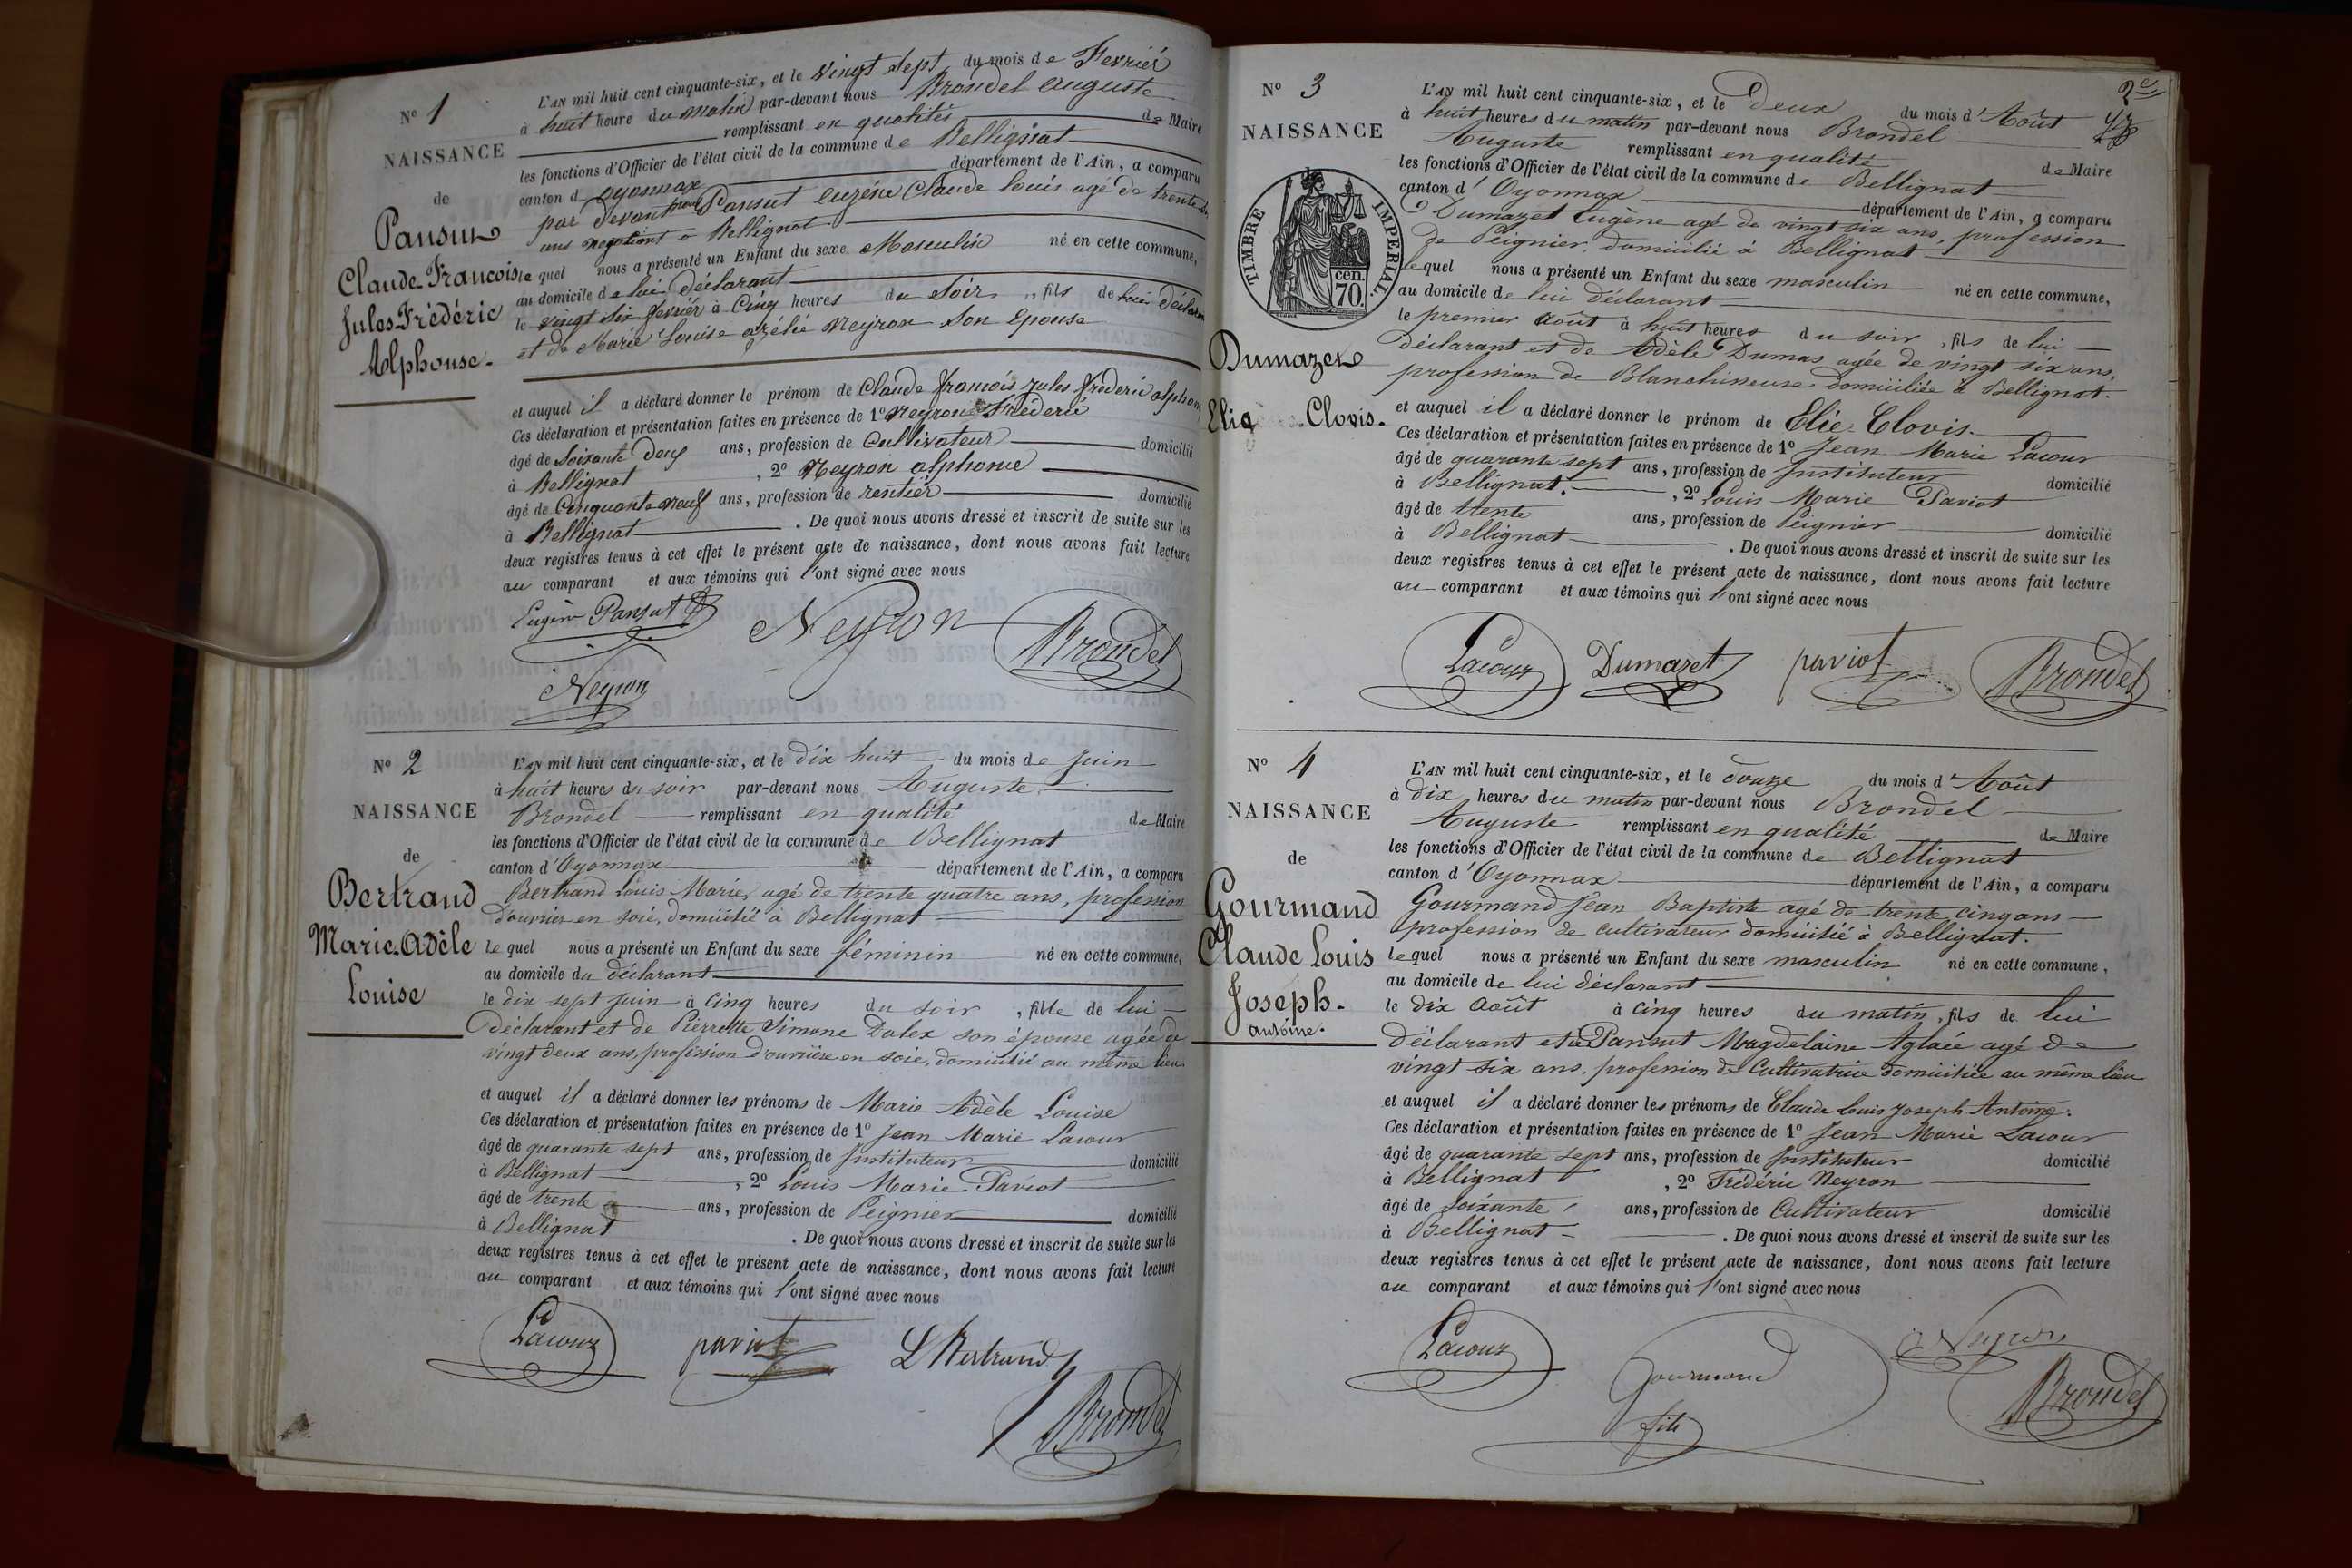 N° 1
NAISSANCE
de
Pansut
Claude Francois
Jules Frédéric
Alphonse.
L'AN mil huit cent cinquante-six, et le vingt sept du mois de Fevrier
à huit heure du matin par-devant nous Brondel auguste
remplissant en qualités de Maire
les fonctions d'Officier de l'état civil de la commune de Bellignat
canton d oyonnax département de l'Ain, a comparu
par devant nous Pansut eugéne Claude louis agé de trente
ans negotiant a Bellignat
le quel nous a présenté un Enfant du sexe Masculin né en cette commune,
au domicile de lui Déclarant
le vingt six fevrier à Cinq heures du Soir, fils de lui Déclarant
et de Marie Louise azélie Neyron Son Epouse
et auquel il a déclaré donner le prénom de Claude francois jules frederic alphonse
Ces déclaration et présentation faites en présence de 1° Neyron Fréderic
âgé de Soixante Deux ans, profession de Cultivateur domicilié
à Bellignat, 2° Neyron alphonse
âgé de Cinquante neuf ans, profession de rentier domicilié
à Bellignat. De quoi nous avons dressé et inscrit de suite sur les
deux registres tenus à cet effet le présent acte de naissance, dont nous avons fait lecture
au comparant et aux témoins qui l'ont signé avec nous
Eugène Pansut Neyron Brondel
Neyron
N° 2
NAISSANCE
de
Bertrand
Marie Adèle
Louise
L'AN mil huit cent cinquante-six, et le dix huit du mois de Juin
à huit heures du soir par-devant nous Auguste
Brondel remplissant en qualité de Maire
les fonctions d'Officier de l'état civil de la commune de Bellignat
canton d'Oyonnax département de l'Ain, a comparu
Bertrand Louis Marie, agé de trente quatre ans, profession
d'ouvrier en soie, domicilié à Bellignat
le quel nous a présenté un Enfant du sexe féminin né en cette commune,
au domicile du déclarant
le dix sept juin à cinq heures du soir, fille de lui
déclarant et de Pierrette Simone Dalex son épouse agée de
vingt deux ans, profession d'ouvrière en soie, domicilié au même lieu
et auquel il a déclaré donner les prénoms de Marie Adèle Louise
Ces déclaration et présentation faites en présence de 1° Jean Marie Lacour
âgé de quarante sept ans, profession de Instituteur domicilié
à Bellignat, 2° Louis Marie Paviot
âgé de trente ans, profession de Peignier domicilié
à Bellignat. De quoi nous avons dressé et inscrit de suite sur les
deux registres tenus à cet effet le présent acte de naissance, dont nous avons fait lecture
au comparant et aux témoins qui l'ont signé avec nous
Lacour paviot L Bertrand
Brondel
2e
N° 3
NAISSANCE
TIMBRE IMPERIAL.
cen.
70.
Dumazet
Elie Clovis.
L'AN mil huit cent cinquante-six, et le Deux du mois d'Août
à huit heures du matin par-devant nous Brondel
Auguste remplissant en qualité de Maire
les fonctions d'Officier de l'état civil de la commune de Bellignat
canton d'Oyonnax département de l'Ain, a comparu
Dumazet Eugène agé de vingt six ans, profession
de Peignier, domicilié à Bellignat
lequel nous a présenté un Enfant du sexe masculin né en cette commune,
au domicile de lui déclarant
le premier Août à huit heures du soir, fils de lui
déclarant et de Adèle Dumas agée de vingt six ans,
profession de Blanchisseuse domiciliée à Bellignat.
et auquel il a déclaré donner le prénom de Elie Clovis.
Ces déclaration et présentation faites en présence de 1° Jean Marie Lacour
âgé de quarante sept ans, profession de Instituteur domicilié
à Bellignat., 2° Louis Marie Paviot
âgé de trente ans, profession de Peignier domicilié
à Bellignat. De quoi nous avons dressé et inscrit de suite sur les
deux registres tenus à cet effet le présent acte de naissance, dont nous avons fait lecture
au comparant et aux témoins qui l'ont signé avec nous
Lacour Dumazet paviot Brondel
N° 4
NAISSANCE
de
Gourmand
Claude Louis
Joseph.
antoine.
L'AN mil huit cent cinquante-six, et le douze du mois d'Août
à dix heures du matin par-devant nous Brondel
Auguste remplissant en qualité de Maire
les fonctions d'Officier de l'état civil de la commune de Bellignat
canton d'Oyonnax département de l'Ain, a comparu
Gourmand Jean Baptiste agé de trente cinq ans
profession de cultivateur domicilié à Bellignat.
lequel nous a présenté un Enfant du sexe masculin né en cette commune,
au domicile de lui déclarant
le dix août à cinq heures du matin, fils de lui
déclarant et de Pansut Magdelaine Aglaée agé de
vingt six ans, profession de Cultivatrice domiciliée au même lieu
et auquel il a déclaré donner les prénoms de Claude Louis Joseph Antoine.
Ces déclaration et présentation faites en présence de 1° Jean Marie Lacour
âgé de quarante sept ans, profession de Instituteur domicilié
à Bellignat, 2° Frédéric Neyron
âgé de soixante ans, profession de Cultivateur domicilié
à Bellignat. De quoi nous avons dressé et inscrit de suite sur les
deux registres tenus à cet effet le présent acte de naissance, dont nous avons fait lecture
au comparant et aux témoins qui l'ont signé avec nous
Lacour Gourmand Neyron
fils Brondel